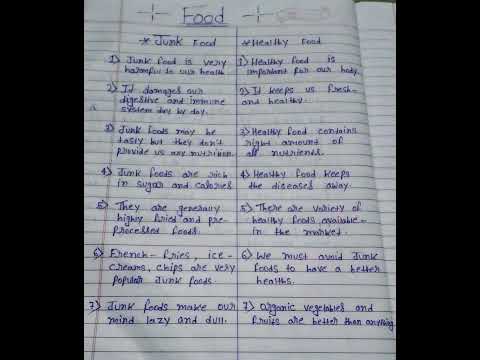 Food
* Junk Food
1) Junk food is very
harmful to our health
2) It damages our
digestive and immune
system day by day.
3) Junk foods may be
tasty but they don't
provide us any nutrition.
4) Junk foods are rich
in sugar and calories
5) They are generally
highly fried and pre-
processed foods.
6) French-fries, ice-
creams, chips are very
popular Junk foods.
7) Junk foods make our
mind lazy and dull.
* Healthy Food
1) Healthy food is
important for our body.
2) It keeps us fresh-
and healthy.
3) Healthy food contains
right amount of
all nutrients.
4) Healthy food keeps
the diseases away.
5) There are variety of
healthy foods available-
in the market.
6) We must avoid Junk
foods to have a better
healths.
7) Organic vegetables and
fruits are better than anything